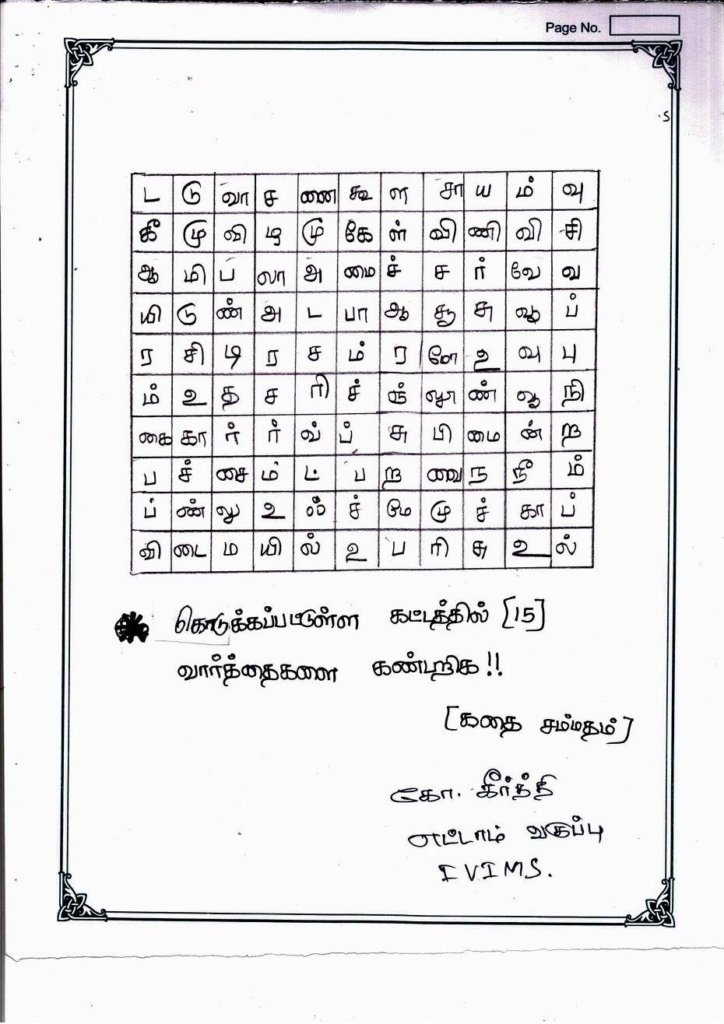 Page No.
ட டு வா ச ணை கூ ள சா ய ம் வு
கீ மு வி டி மு கே ள் வி ணி வி சி
ஆ மி ப லா அ மை ச் ச ர் வே வ
யி டு ண் அ ட பா ஆ சூ சு ழ ப்
ர சி டி ர ச ம் ர ளே உ வு பு
ம் உ த ச ரி ச் ங் ண் நி
கை கா ர் ர் வ் ப் சு பி மை ன் ற
ப ச் சை ம் ட் ப ற ணு ந நீ ம்
ப் ண் லு உ ச் மே மு ச் கா ப்
வி டை ம யி ல் உ ப ரி சு உ ல்
கொடுக்கப்பட்டுள்ள கட்டத்தில் [15]
வார்த்தைகளை கண்டறிக!!
[கதை சம்மதம்]
கோ. கீர்த்தி
எட்டாம் வகுப்பு
IVIMS.